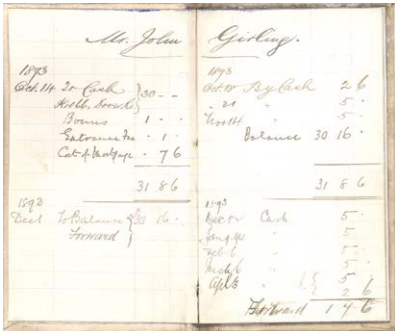 Mr. John Girling.
1893
Oct. 14. To Cash } 30 - -
Bonus 1 - -
Entrance Fee - 1 -
Cost of Mortgage - 7 6
31 8 6
1893
Dec 1 To Balance } 30 16 -
Forward
1893
Oct 14 By Cash 2 6
" 21 " 5 -
Nov 14 " 5 -
Balance 30 16 -
31 8 6
1893
Dec 12 Cash 5 -
" 5 -
Feb 6 " 5 -
" 5 -
Apl 3 " 5 -
2 6
Forward 1 7 6